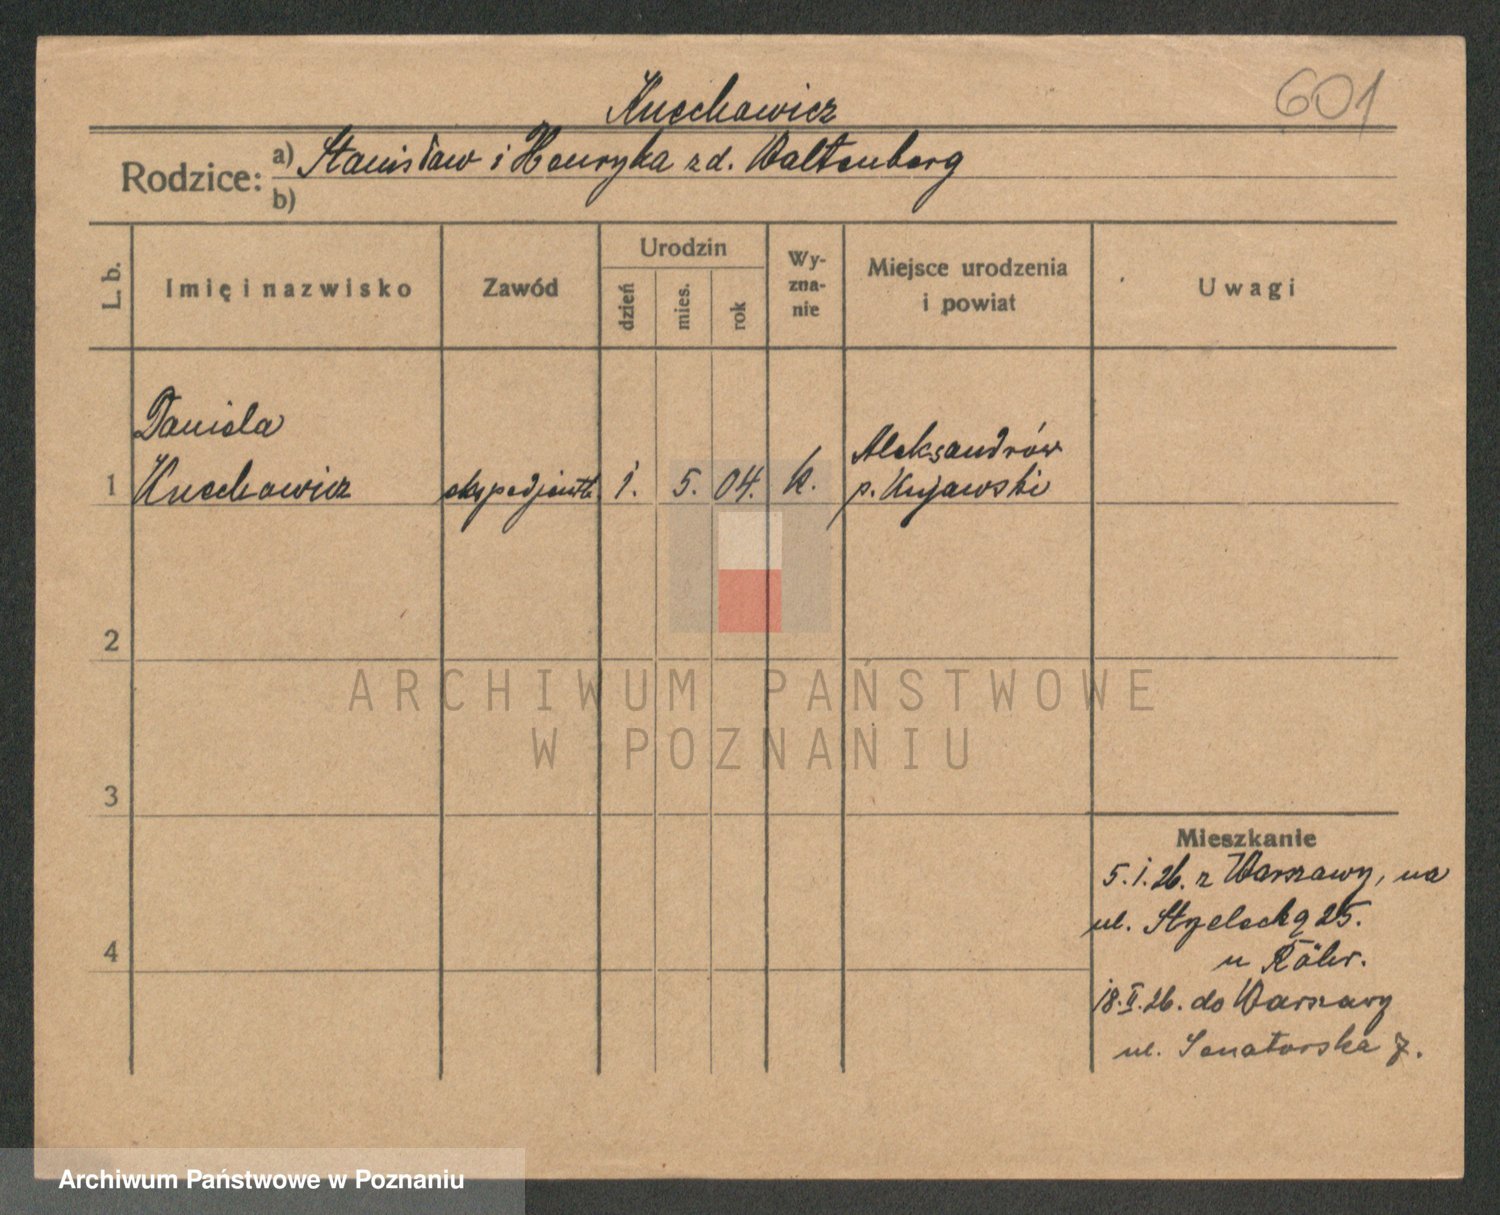 Kuechowicz
601
Rodzice: a) Stanisław i Henryka z d. Waltenberg
b)
L. b.
Imię i nazwisko
Zawód
Urodzin
dzień
mies.
rok
Wy-
zna-
nie
Miejsce urodzenia
i powiat
Uwagi
Daniela
1 Kuechowicz ekspedjentk 1. 5. 04. k. Aleksandrów
p. Kujawski
2
3
4
Mieszkanie
5.1.26. z Warszawy, na
ul. Strzelecką 25.
u Röhr.
18.II.26. do Warszawy
ul. Senatorska 7.
ARCHIWUM PAŃSTWOWE
W POZNANIU
Archiwum Państwowe w Poznaniu